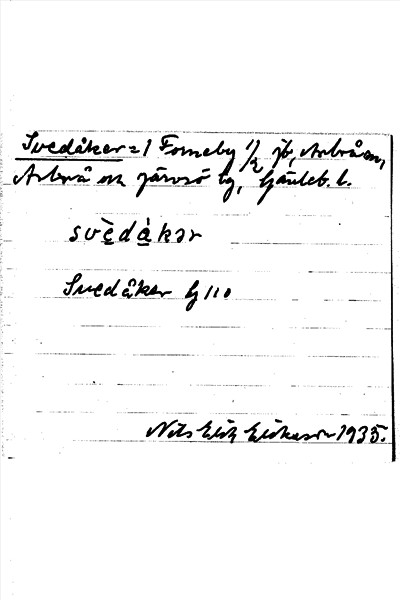 Svedåker = 1 Forneby 1/2 jb, Arbrå sn,
Arbrå och Järvsö tg, Gävleb. l.
svèdàkər
Svedåker G 110
Nils Erik Eriksson 1935.